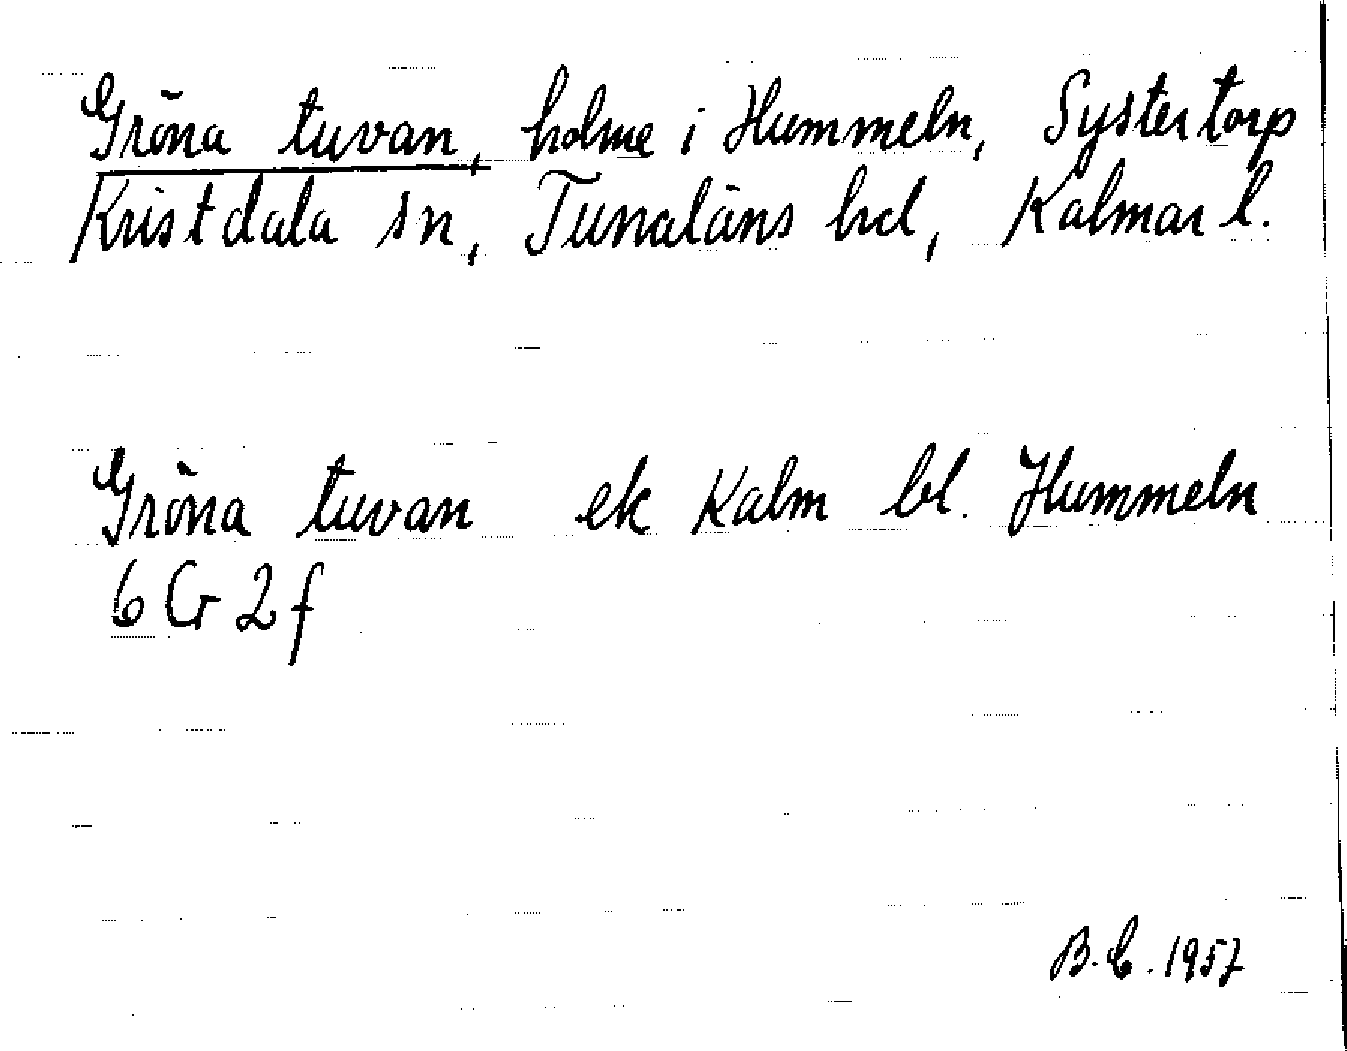 Gröna tuvan, holme i Hummeln, Systertorp
Kristdala sn, Tunaläns hd, Kalmar l.
Gröna tuvan ek Kalm bl. Hummeln
6 G 2 f
B.C. 1957